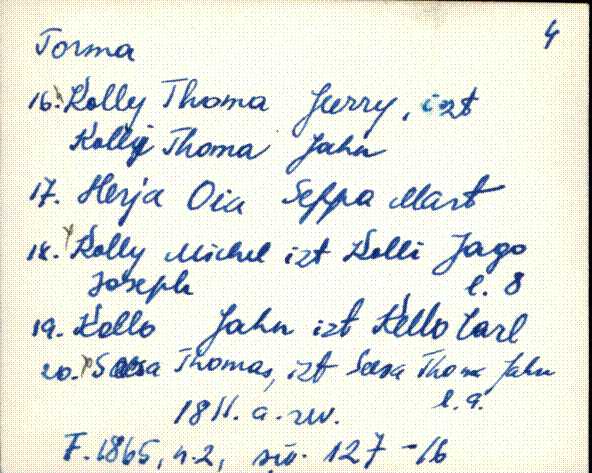 4
Torma
16. Kolly Thoma Jurry, izt
Kolly Thoma Jahn
17. Herja Oia Seppa Mart
18. Kolly Michel izt Kolli Jago
Joseph l. 8
19. Kollo Jahn izt Kello Carl
20. Thomas, izt Thoma Jahn
1811. a. rev. l. 9.
F. 1865, n. 2, 127-16